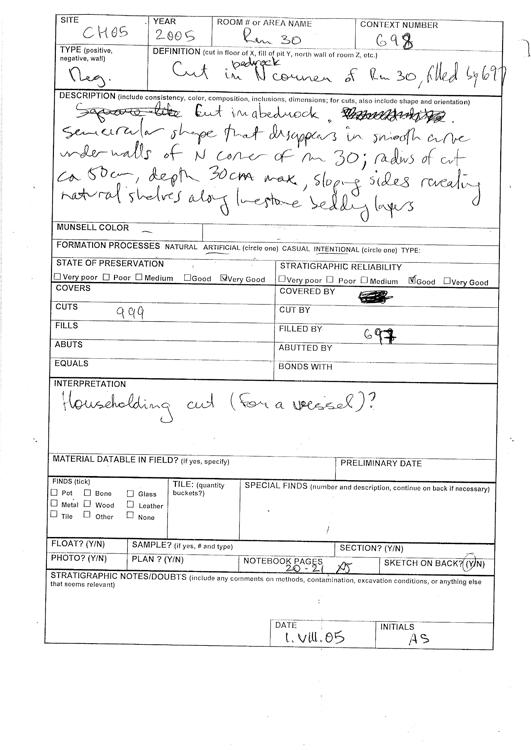 SITE CH05
YEAR 2005
ROOM # or AREA NAME Rm 30
CONTEXT NUMBER 698
TYPE (positive, negative, wall) Neg.
DEFINITION (cut in floor of X, fill of pit Y, north wall of room Z, etc.)
Cut in bedrock N corner of Rm 30, filled by 697
DESCRIPTION (include consistency, color, composition, inclusions, dimensions; for cuts, also include shape and orientation)
Square-like Cut in a bedrock.
Semicircular shape that disappears in smooth curve
under walls of N corner of rm 30; radius of cut
ca 50cm, depth 30cm max, sloping sides revealing
natural shelves along limestone bedding layers
MUNSELL COLOR –
FORMATION PROCESSES NATURAL ARTIFICIAL (circle one) CASUAL INTENTIONAL (circle one) TYPE:
STATE OF PRESERVATION
☐Very poor ☐Poor ☐Medium ☐Good ☑Very Good
STRATIGRAPHIC RELIABILITY
☐Very poor ☐Poor ☐Medium ☑Good ☐Very Good
COVERS
COVERED BY
CUTS 999
CUT BY
FILLS
FILLED BY 697
ABUTS
ABUTTED BY
EQUALS
BONDS WITH
INTERPRETATION
Householding cut (for a vessel)?
MATERIAL DATABLE IN FIELD? (if yes, specify)
PRELIMINARY DATE
FINDS (tick)
☐ Pot ☐ Bone ☐ Glass
☐ Metal ☐ Wood ☐ Leather
☐ Tile ☐ Other ☐ None
TILE: (quantity buckets?)
SPECIAL FINDS (number and description, continue on back if necessary)
FLOAT? (Y/N)
SAMPLE? (if yes, # and type)
SECTION? (Y/N)
PHOTO? (Y/N)
PLAN ? (Y/N)
NOTEBOOK PAGES 20-21 AS
SKETCH ON BACK? (Y/N)
STRATIGRAPHIC NOTES/DOUBTS (include any comments on methods, contamination, excavation conditions, or anything else
that seems relevant)
DATE 1.VIII.05
INITIALS AS